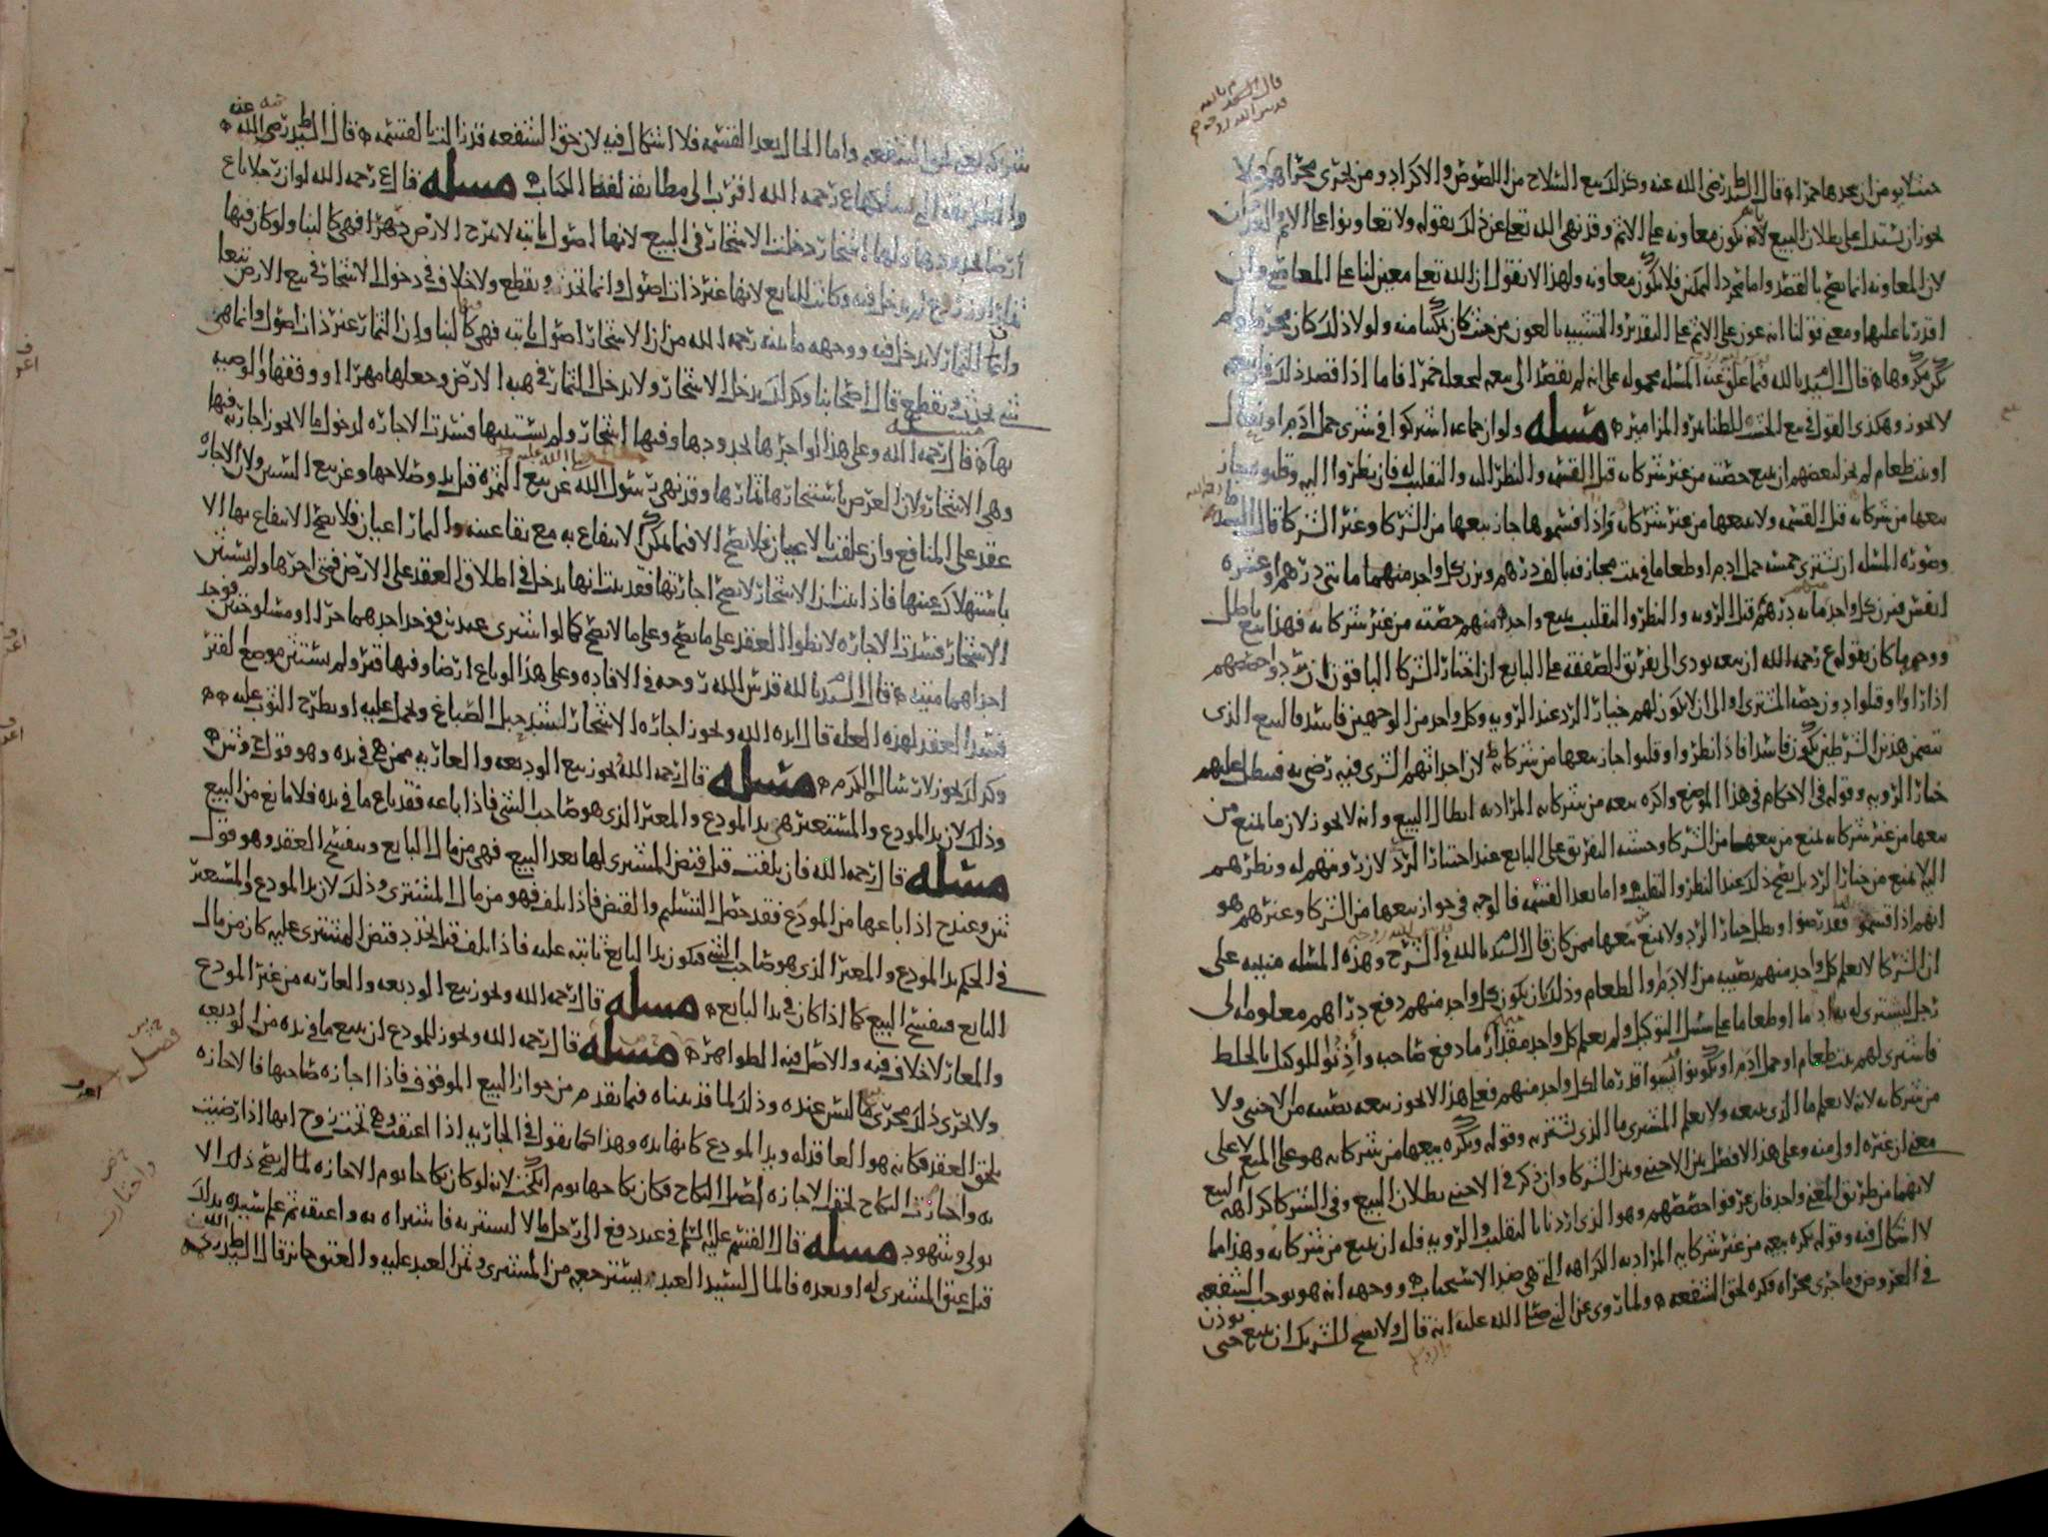 حيث لا يؤمن ان يجعلها خمرا قال السيد ط رضي الله عنه وكذلك بيع السلاح من اللصوص والاكراد ومن يجري مجراهم ولا
يجوز ان يستدل على بطلان البيع لانه يكون معاونة على الاثم وقد نهى الله تعلى عن ذلك بقوله ولا تعاونوا على الاثم والعدوان
لان المعاونة انما تصح بالقصد واما مجرد التمكين فلا يكون معاونة ولهذا لا نقول ان الله تعلى معين لنا على المعاصي وان
اقدرنا عليها ومعنى قولنا انه عون على الاثم على التقدير والتشبيه بالعون من حيث كان تمكينا منه ولولا ذلك كان محرما ولم
يكن مكروها قال السيد بالله فيما علق عنه المسله محمولة على انه لم يقصد الى بيعه لجعله خمرا فاما اذا قصد ذلك فان بيعه
لا يجوز وهكذى القول في بيع الخشب للطنابير والمزامير مسله ولو ان جماعة اشتركوا في شرى حمل ادم او
او بيت طعام لم يجز لبعضهم ان يبيع حصته من غير شركائه قبل القسمة والنظر اليه والتقليب له فان نظروا اليه وقلبوه جاز
بيعها من شركائه قبل القسمة ولا بيعها من غير شركائه واذا قسموها جاز بيعها من الشركا وغير الشركا قال السيد
وصورة المسله ان يشتري خمسة حمل ادم او طعاما في بيت مجازفة بالف درهم ويزن كل واحد منهما مائتي درهم او عشرة
انفس فيزن كل واحد مائة درهم قبل الروية والنظر والتقليب يبيع واحد منهم حصته من غير شركائه فهذا بيع باطل
ووجهه ما كان يقوله ع رحمه الله ان بيعه يودي الى تفريق الصفقة على البايع ان اختار الشركا الباقون ان يردوا حصصهم
اذا راوا وقلبوا دون حصة المشتري او الى ان لا يكون لهم خيار الرد عند الروية وكل واحد من الوجهين فاسد فالبيع الذي
تضمن هذين الشرطين يكون فاسدا فاذا نظروا وقلبوا جاز بيعها من شركائه لان احدا منهم الذي فيه رضي به فبطل عليهم
خيار الروية وقوله في الاحكام في هذا الموضع واكره بيعه من شركائه المراد به ابطال البيع وانه لا يجوز لان ما يمنع من
بيعها من غير شركائه يمنع من بيعها من الشركا وحسنه التفريق على البايع عند اختيار الرد لان رد وفهم له ونظرهم
اليه يمنع من خيار الرد بل يصح ذلك عند النظر والتقليب واما بعد القسمة فالوجه في جواز بيعها من الشركا وغيرهم هو
انهم اذا قسموا فقد رضوا وبطل خيار الرد ولا يمنع بيعها ممن كان قال السيد بالله في الشرح وهذه المسله مبنية على
ان الشركا لا يعلم كل واحد منهم نصيبه من الادم او الطعام وذلك بان يكون كل واحد منهم دفع دراهم معلومة الى
رجل ليشتري له بها ادما او طعاما على سبيل التوكيل ولم يعلم كل واحد مقدار ما دفع صاحبه وأذنوا للوكيل بالخلط
فاشترى لهم بيت طعام او حمل ادم او يكونوا نسوا قدر ما لكل واحد منهم فعلى هذا لا يجوز بيعه نصيبه من الاجنبي ولا
من شركائه لانه لا يعلم ما الذي يبيعه ولا يعلم المشتري ما الذي يشتريه وقوله ويكره بيعها من شركائه هو على المنع لا على
معنى ان غيره اولى منه وعلى هذا لا فصل بين الاجنبي وبين الشركا وان ذكر في الاجنبي بطلان البيع وفي الشركا كراهة البيع
لانهما من طريق المعنى واحد فان عرفوا حصصهم وهو الذي اردنا بالتقليب والروية فله ان يبيع من شركائه وهذا مما
لا اشكال فيه وقوله يكره بيعه من غير شركائه المراد به الكراهة التي هي ضد الاستحباب ووجهه انه هو يوجب الشفعة
في العروض وما جرى مجراه فكره لحق الشفعة ولما روي عن النبي صلى الله عليه انه قال ولا يصح للشريك ان يبيع حتى يوذن
شريكه يعني لحق الشفعة واما الحال بعد القسمة فلا اشكال فيه لان حق الشفعة قد زالت بالقسمة قال السيد ط رضي الله عنه
ع رحمه الله اقرب الى مطابقة لفظ الكتاب مسله قال ع رحمه الله لو ان رجلا باع
ارضا بحدودها ولها اشجار دخلت الاشجار في البيع لانها اصول ثابتة لا تبرح الارض دهرا فهي كالبنا ولو كان فيها
ثمار او زروع لم يدخل فيه وكانت للبايع لانها غير ذات اصول وانما تجذ وتقطع ولا خلاف في دخول الاشجار في بيع الارض تبعا
وانما الثمار لا يدخل فيه ووجهه ما بينه رحمه الله من ان الاشجار اصول ثابتة فهي كالبنا وان الثمار غير ذات اصول وانما هي
شي يجذ ويقطع قال اصحابنا وكذلك يدخل الاشجار ولا يدخل الثمار في هبة الارض وجعلها مهرا او وقفها والوصية
بها قال رحمه الله وعلى هذا لو اجرها بحدودها وفيها اشجار ولم يستثنها فسدت الاجارة لدخول ما لا يجوز اجارته فيها
وهي الاشجار ولان الغرض باستئجارها ثمارها وقد نهى رسول الله عن بيع الثمرة قبل بدو صلاحها وعن بيع السنين ولان الاجارة
عقد على المنافع وان علقت بالاعيان فلا تصح الا فيما يمكن الانتفاع به مع بقا عينه والثمار اعيان فلا يصح الانتفاع بها الا
باستهلاك عينها فاذا ثبت ان الاشجار لا تصح اجارتها فقد بينا انها يدخل في اطلاق العقد على الارض فمتى اجرها ولم يستثن
الاشجار فسدت الاجارة لانطوا العقد على ما يصح وعلى ما لا يصح كما لو اشترى عبدين فوجد احدهما حرا او مسلوختين فوجد
احداهما ميتة قال السيد بالله قدس الله روحه في الافادة وعلى هذا لو باع ارضا وفيها قبر ولم يستثن موضع القبر
فسد العقد لهذه العلة قال ايده الله ويجوز اجارة الاشجار لشد حبل الصباغ ويحمل عليه او يطرح الثوب عليه
وكذلك يجوز لارسال الكرم مسله قال رحمه الله يجوز بيع الوديعة والعارية ممن هي في يده وهو قول ح وش
وذلك لان يد المودع والمستعير هي يد المودع والمعير الذي هو صاحب الشي فاذا باعه فقد باع ما في يده فلا مانع من البيع
مسله قال رحمه الله فان تلفت قبل قبض المشتري لها بعد البيع فهي من مال البايع وينفسخ العقد وهو قول
ش وعند ح اذا باعها من المودع فقد حصل التسليم والقبض فاذا تلف فهو من مال المشتري وذلك لان يد المودع والمستعير
في الحكم يد المودع والمعير الذي هو صاحب الشي فيكون يد البايع ثابتة عليه فاذا تلف قبل تجدد قبض المشتري عليه كان من مال
البايع فينفسخ البيع كما اذا كان في يد البايع مسله قال رحمه الله ويجوز بيع الوديعة والعارية من غير المودع
والمعار لا خلاف فيه والاصل فيه الظواهر مسله قال رحمه الله ويجوز للمودع ان يبيع ما في يده من الوديعة
ولا يجري ذلك مجرى بيع ما ليس عنده وذلك لما قد بيناه فيما تقدم من جواز البيع الموقوف فاذا اجازه صاحبها فالاجازة
يلحق العقد فكانه هو العاقد له ويد المودع كانها يده وهذا كما نقول في الجارية اذا اعتقت وهي تحت زوج انها اذا رضيت
به واجازت النكاح لحقت الاجازة اصل النكاح فكان نكاحها يوم انكحت لانه لو كان نكاحا يوم الاجازة لما لم يصح ذلك الا
بولي وشهود مسله قال القسم عليه السلم في عبد دفع الى رجل مالا ليشتريه فاشتراه به واعتقه ثم علم سيده بذلك
قبل عتق المشتري له او بعده فالمال لسيد العبد يسترجعه من المشتري وثمن العبد عليه والعتق جائز قال السيد ط رضي الله